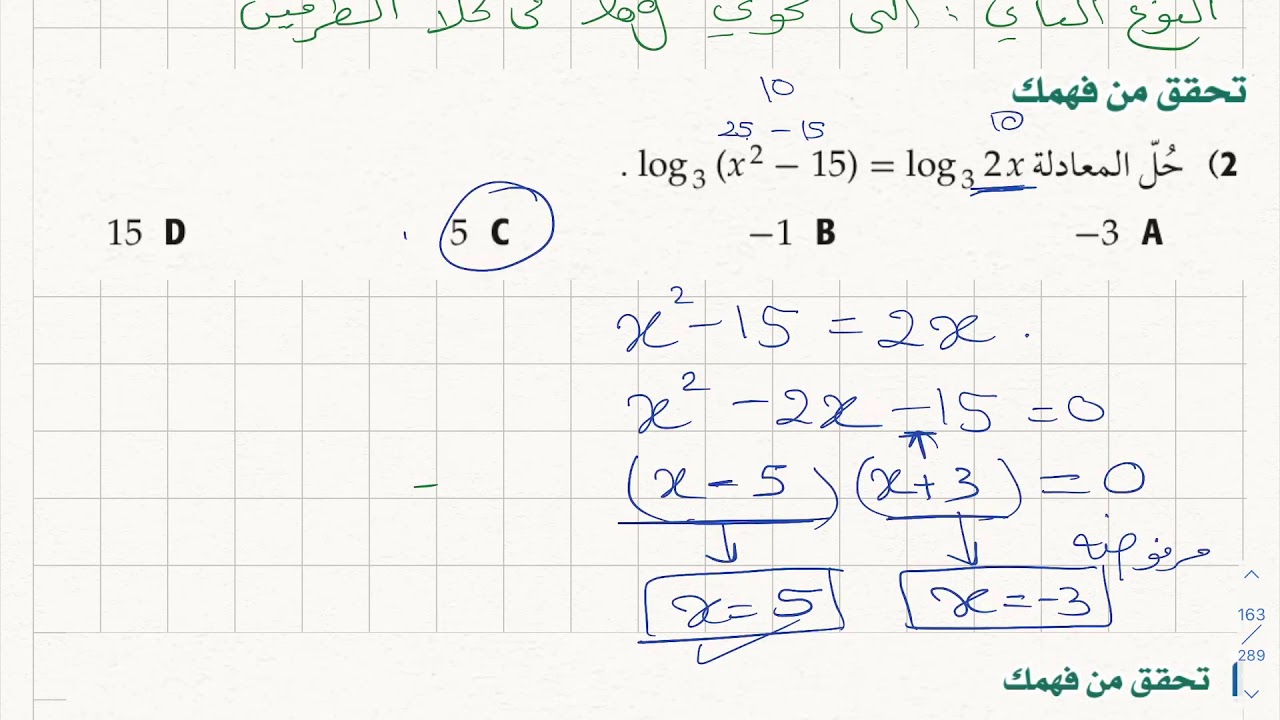 النوع الثاني : التي تحوي log في كلا الطرفين
تحقق من فهمك
10
25 - 15
10
2) حُلّ المعادلة log₃ (x² − 15) = log₃ 2x .
−3 A −1 B 5 C 15 D
x² - 15 = 2x .
x² - 2x - 15 = 0
(x - 5) (x + 3) = 0
مرفوضة
x = 5 x = -3
163
/
289
تحقق من فهمك